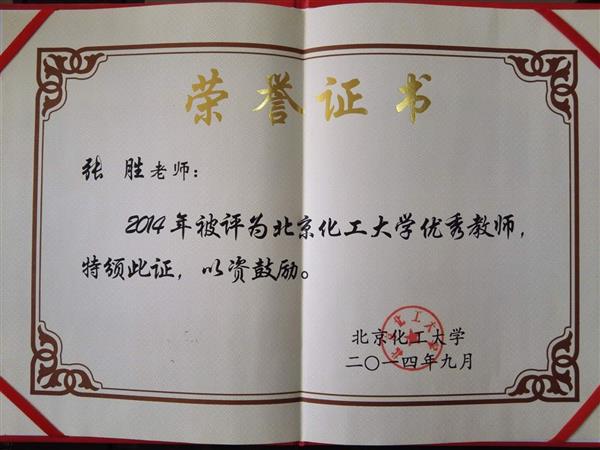 荣誉证书
张 胜老师：
2014年被评为北京化工大学优秀教师，
特颁此证，以资鼓励。
北京化工大学
二〇一四年九月
北京化工大学